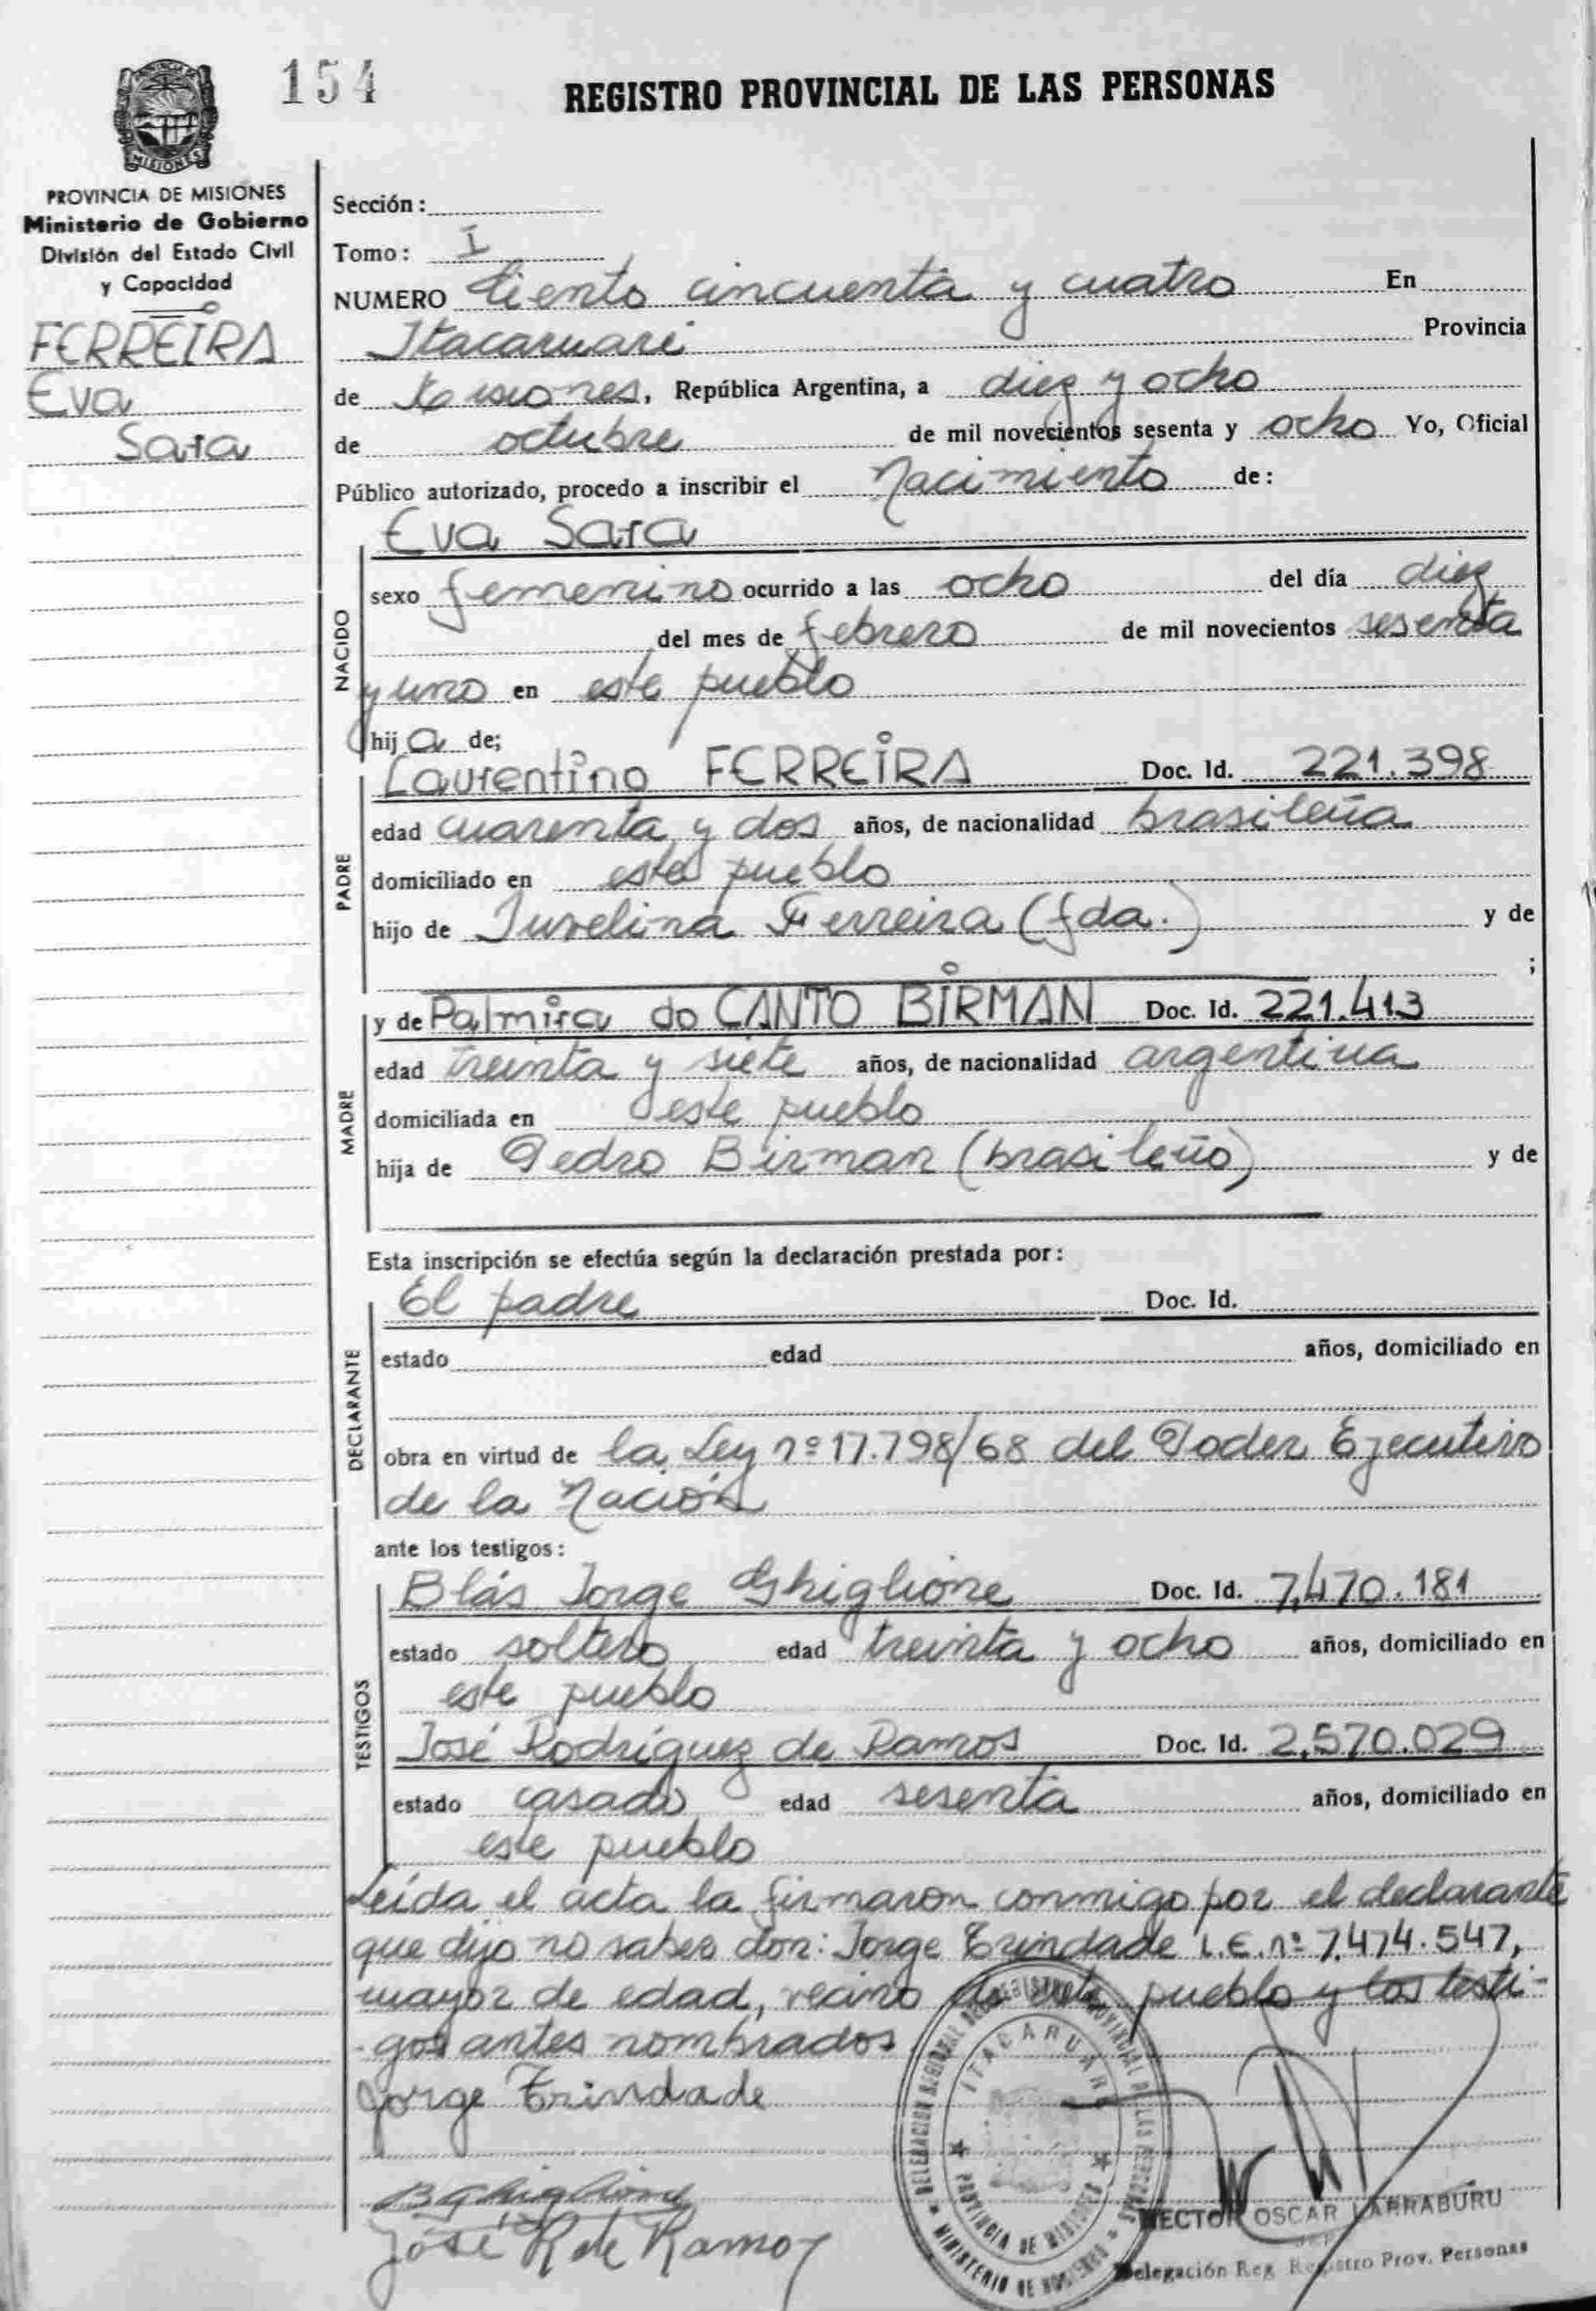 154
REGISTRO PROVINCIAL DE LAS PERSONAS
MISIONES
PROVINCIA DE MISIONES
Ministerio de Gobierno
División del Estado Civil
y Capacidad
FERREIRA
Eva
Sara
Sección:
Tomo: I
NUMERO Ciento cincuenta y cuatro En
Itacaruaré Provincia
de Misiones, República Argentina, a diez y ocho
de octubre de mil novecientos sesenta y ocho Yo, Oficial
Público autorizado, procedo a inscribir el Nacimiento de:
Eva Sara
NACIDO
sexo femenino ocurrido a las ocho del día diez
del mes de febrero de mil novecientos sesenta
y uno en este pueblo
hija de;
PADRE
Laurentino FERREIRA Doc. Id. 221.398
edad cuarenta y dos años, de nacionalidad brasileña
domiciliado en este pueblo
hijo de Juvelina Ferreira (fda.) y de
;
MADRE
y de Palmira do CANTO BIRMAN Doc. Id. 221.413
edad treinta y siete años, de nacionalidad argentina
domiciliada en este pueblo
hija de Pedro Birman (brasileño) y de
Esta inscripción se efectúa según la declaración prestada por:
DECLARANTE
El padre Doc. Id.
estado edad años, domiciliado en
obra en virtud de la Ley nº 17.798/68 del Poder Ejecutivo
de la Nación
ante los testigos:
TESTIGOS
Blás Jorge Ghiglione Doc. Id. 7,470.181
estado soltero edad treinta y ocho años, domiciliado en
este pueblo
José Rodriguez de Ramos Doc. Id. 2,570.029
estado casado edad sesenta años, domiciliado en
este pueblo
Leída el acta la firmaron conmigo por el declarante
que dijo no saber don: Jorge Trindade L.E. nº 7.474.547,
mayor de edad, vecino de este pueblo y los testi-
-gos antes nombrados
Jorge Trindade
B Ghiglione
José R de Ramos
ITACARUARE
PROVINCIA DE MISIONES
MINISTERIO DE GOBIERNO
HECTOR OSCAR LARRABURU
Delegación Reg. Registro Prov. Personas